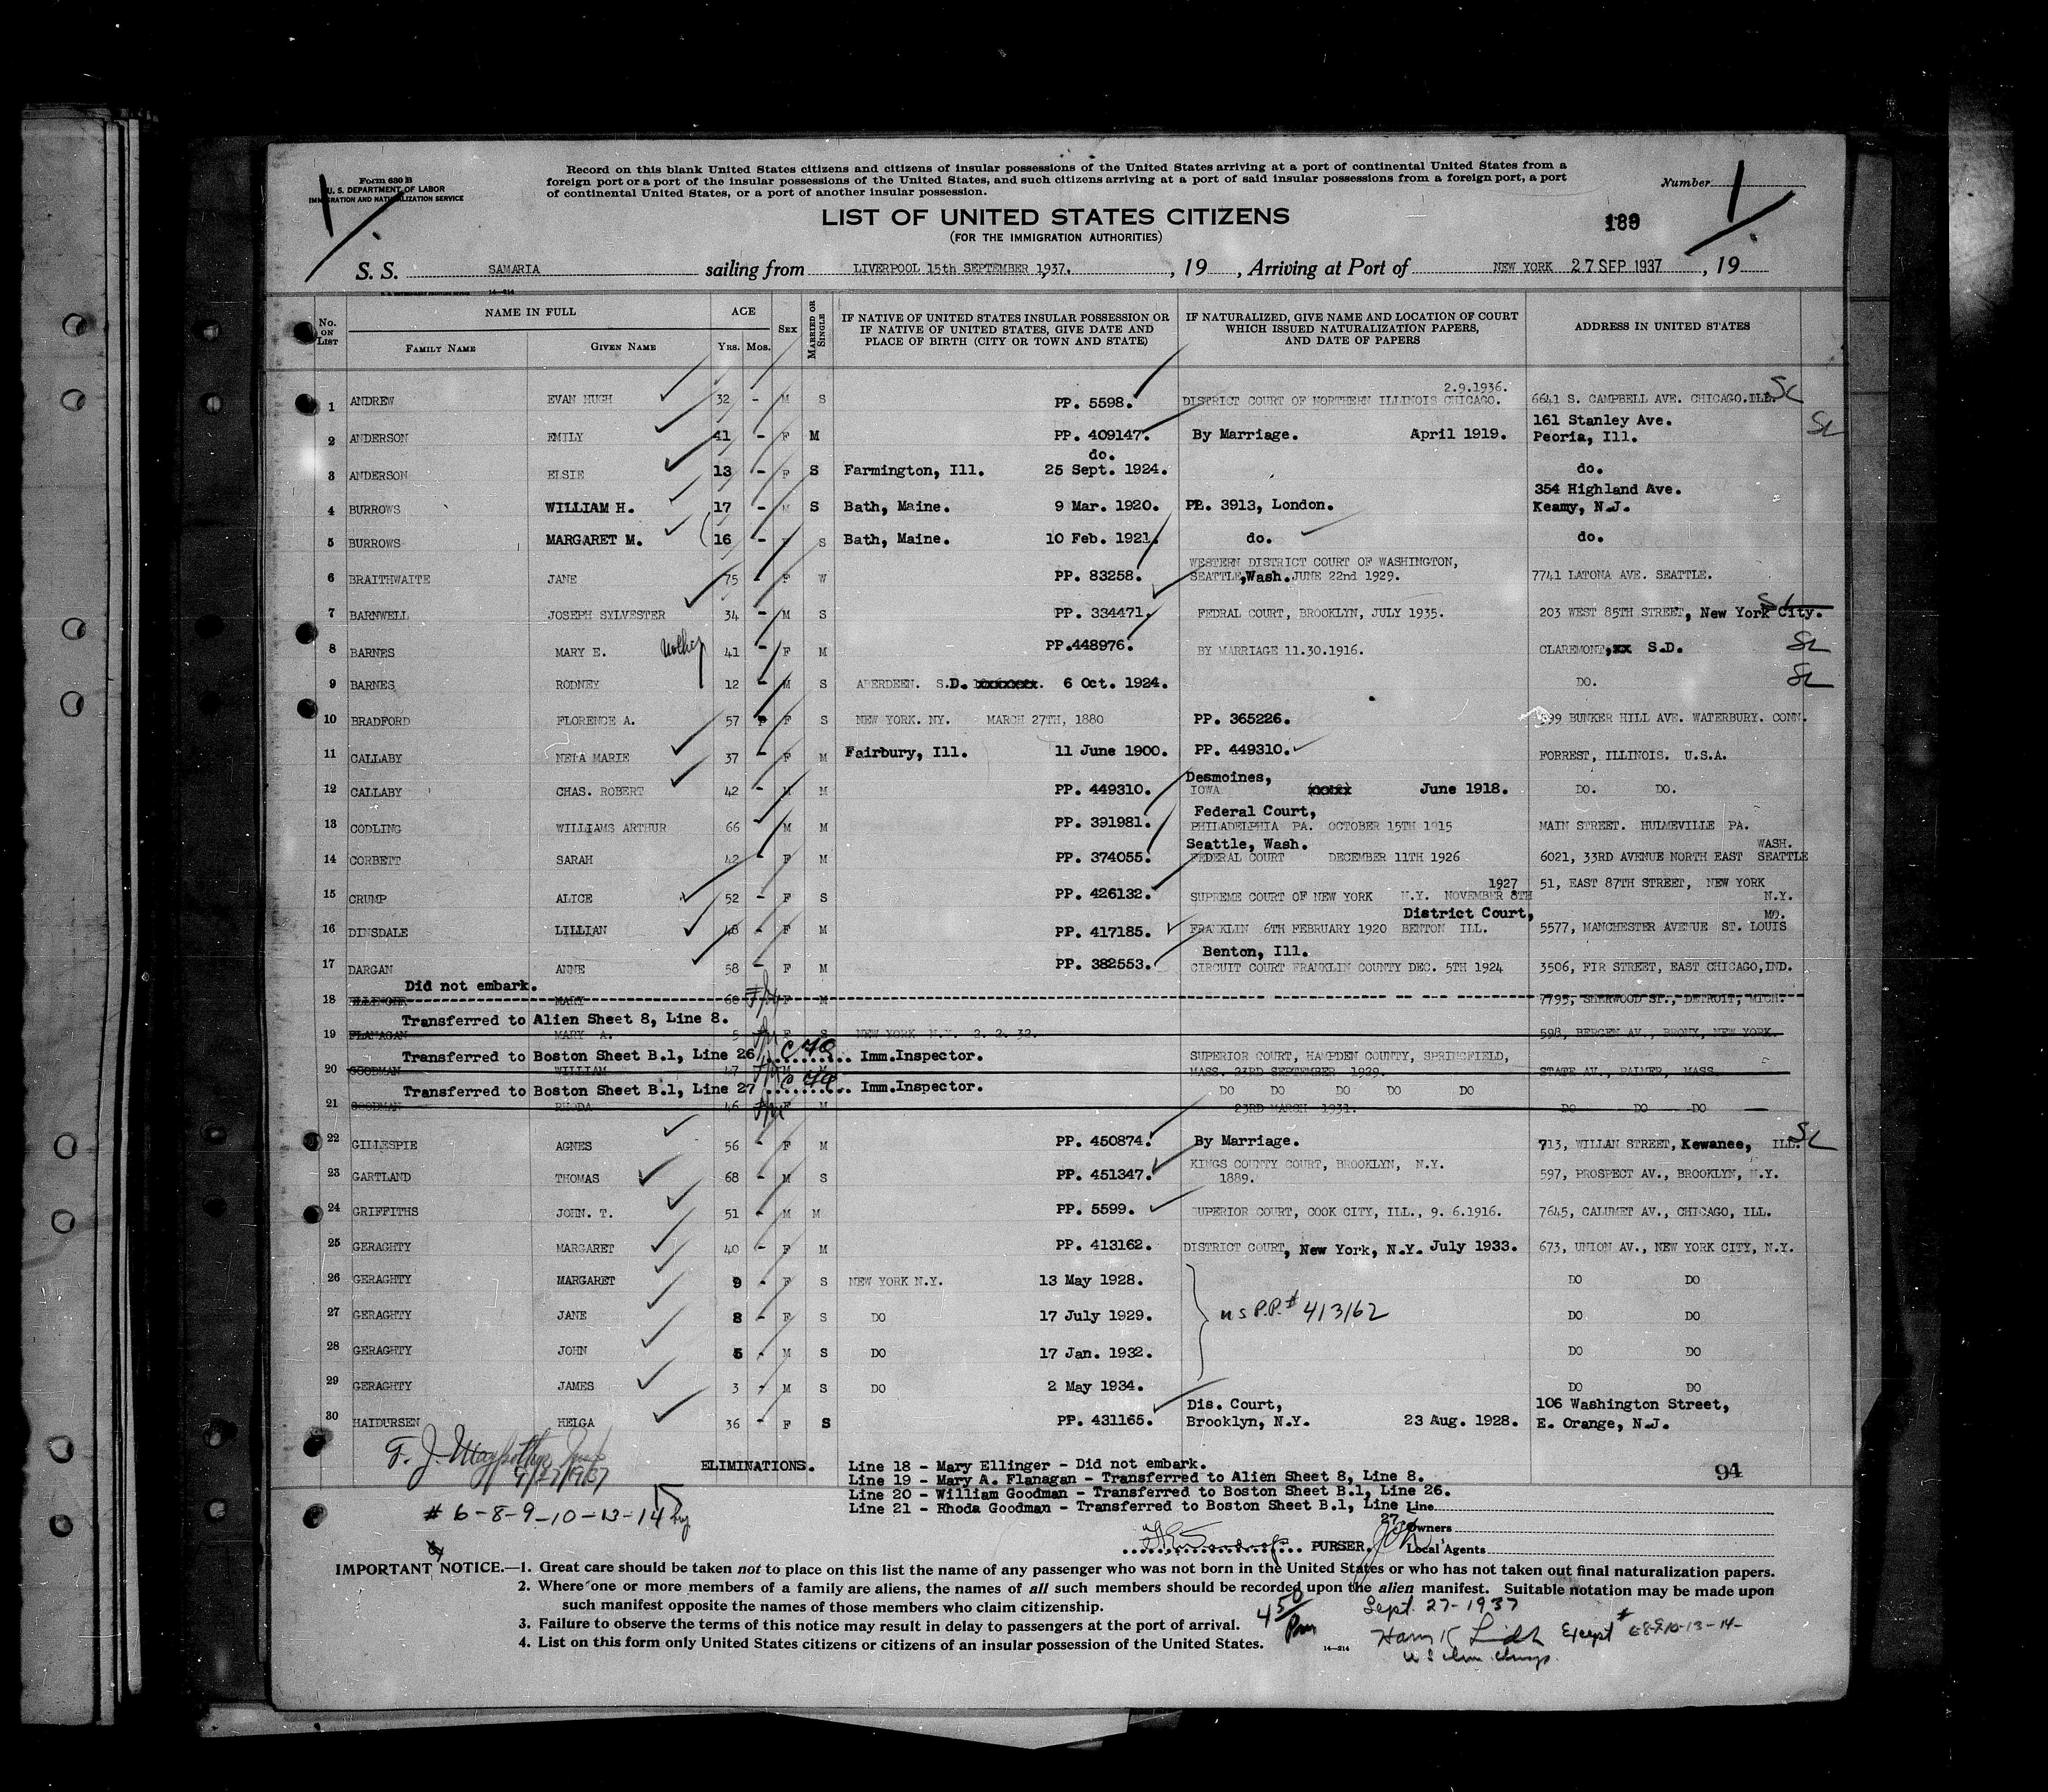 Form 630 B
U. S. DEPARTMENT OF LABOR
IMMIGRATION AND NATURALIZATION SERVICE
Record on this blank United States citizens and citizens of insular possessions of the United States arriving at a port of continental United States from a
foreign port or a port of the insular possessions of the United States, and such citizens arriving at a port of said insular possessions from a foreign port, a port
of continental United States, or a port of another insular possession.
Number 1
LIST OF UNITED STATES CITIZENS
(FOR THE IMMIGRATION AUTHORITIES)
189
S. S. SAMARIA sailing from LIVERPOOL 15th SEPTEMBER 1937. , 19 , Arriving at Port of NEW YORK 27 SEP 1937 , 19
14-214
No. ON LIST NAME IN FULL AGE SEX MARRIED OR SINGLE IF NATIVE OF UNITED STATES INSULAR POSSESSION OR IF NATIVE OF UNITED STATES, GIVE DATE AND PLACE OF BIRTH (CITY OR TOWN AND STATE) IF NATURALIZED, GIVE NAME AND LOCATION OF COURT WHICH ISSUED NATURALIZATION PAPERS, AND DATE OF PAPERS ADDRESS IN UNITED STATES
FAMILY NAME GIVEN NAME YRS. MOS.
2.9.1936.
1 ANDREW EVAN HUGH 32 - M S PP. 5598. DISTRICT COURT OF NORTHERN ILLINOIS CHICAGO. 6641 S. CAMPBELL AVE. CHICAGO.ILL.
161 Stanley Ave.
2 ANDERSON EMILY 41 - F M PP. 409147. By Marriage. April 1919. Peoria, Ill.
do.
3 ANDERSON ELSIE 13 - F S Farmington, Ill. 25 Sept. 1924. do.
354 Highland Ave.
4 BURROWS WILLIAM H. 17 - M S Bath, Maine. 9 Mar. 1920. PP. 3913, London. Keamy, N.J.
5 BURROWS MARGARET M. 16 - F S Bath, Maine. 10 Feb. 1921. do. do.
WESTERN DISTRICT COURT OF WASHINGTON,
6 BRAITHWAITE JANE 75 - F W PP. 83258. SEATTLE,Wash. JUNE 22nd 1929. 7741 LATONA AVE. SEATTLE.
7 BARNWELL JOSEPH SYLVESTER 34 - M S PP. 334471. FEDRAL COURT, BROOKLYN, JULY 1935. 203 WEST 85TH STREET, New York City.
8 BARNES MARY E. Mother 41 - F M PP.448976. BY MARRIAGE 11.30.1916. CLAREMONT,xx S.D.
9 BARNES RODNEY 12 - M S APERDEEN. S.D. xxxxxxx. 6 Oct. 1924. DO.
10 BRADFORD FLORENCE A. 57 F S NEW YORK. NY. MARCH 27TH, 1880 PP. 365226. 399 BUNKER HILL AVE. WATERBURY. CONN.
11 CALLABY NETA MARIE 37 - F M Fairbury, Ill. 11 June 1900. PP. 449310. FORREST, ILLINOIS. U.S.A.
Desmoines,
12 CALLABY CHAS. ROBERT 42 - M M PP. 449310. IOWA xxxxx June 1918. DO. DO.
Federal Court,
13 CODLING WILLIAMS ARTHUR 66 M M PP. 391981. PHILADELPHIA PA. OCTOBER 15TH 1915 MAIN STREET. HULMEVILLE PA.
Seattle, Wash. WASH.
14 CORBETT SARAH 42 - F M PP. 374055. FEDERAL COURT DECEMBER 11TH 1926 6021, 33RD AVENUE NORTH EAST SEATTLE
1927 51, EAST 87TH STREET, NEW YORK
15 CRUMP ALICE 52 - F S PP. 426132. SUPREME COURT OF NEW YORK N.Y. NOVEMBER 8TH N.Y.
District Court, MO.
16 DINSDALE LILLIAN 48 - F M PP. 417185. FRANKLIN 6TH FEBRUARY 1920 BENTON ILL. 5577, MANCHESTER AVENUE ST. LOUIS
Benton, Ill.
17 DARGAN ANNE 58 - F M PP. 382553. CIRCUIT COURT FRANKLIN COUNTY DEC. 5TH 1924 3506, FIR STREET, EAST CHICAGO,IND.
Did not embark.
18 ELLINGER MARY 60 F M 7795, SHERWOOD ST., DETROIT, MICH.
Transferred to Alien Sheet 8, Line 8.
19 FLANAGAN MARY A. 5 F S NEW YORK N.Y. 2. 2. 32. 598, BERGEN AV., BRONX, NEW YORK.
Transferred to Boston Sheet B.1, Line 26 Imm.Inspector. SUPERIOR COURT, HAMPDEN COUNTY, SPRINGFIELD,
20 GOODMAN WILLIAM 47 M M MASS. 23RD SEPTEMBER 1929. STATE AV., PALMER, MASS.
Transferred to Boston Sheet B.1, Line 27 Imm.Inspector. DO DO DO DO DO
21 GOODMAN RHODA 46 F M 23RD MARCH 1931. DO DO DO
22 GILLESPIE AGNES 56 - F M PP. 450874. By Marriage. 713, WILLAN STREET, Kewanee, ILL.
KINGS COUNTY COURT, BROOKLYN, N.Y.
23 GARTLAND THOMAS 68 - M S PP. 451347. 1889. 597, PROSPECT AV., BROOKLYN, N.Y.
24 GRIFFITHS JOHN. T. 51 - M M PP. 5599. SUPERIOR COURT, COOK CITY, ILL., 9. 6.1916. 7645, CALUMET AV., CHICAGO, ILL.
25 GERAGHTY MARGARET 40 - F M PP. 413162. DISTRICT COURT, New York, N.Y. July 1933. 673, UNION AV., NEW YORK CITY, N.Y.
26 GERAGHTY MARGARET 9 - F S NEW YORK N.Y. 13 May 1928. DO DO
27 GERAGHTY JANE 8 - F S DO 17 July 1929. U S P.P. # 413162 DO DO
28 GERAGHTY JOHN 5 - M S DO 17 Jan. 1932. DO DO
29 GERAGHTY JAMES 3 - M S DO 2 May 1934. DO DO
Dis. Court, 106 Washington Street,
30 HAIDURSEN HELGA 36 - F S PP. 431165. Brooklyn, N.Y. 23 Aug. 1928. E. Orange, N.J.
9/27/1937
ELIMINATIONS. Line 18 - Mary Ellinger - Did not embark.
Line 19 - Mary A. Flanagan - Transferred to Alien Sheet 8, Line 8.
Line 20 - William Goodman - Transferred to Boston Sheet B.1, Line 26.
Line 21 - Rhoda Goodman - Transferred to Boston Sheet B.1, Line Line
27.
94
# 6-8-9-10-13-14
PURSER.
Owners
Local Agents
IMPORTANT NOTICE.—1. Great care should be taken not to place on this list the name of any passenger who was not born in the United States or who has not taken out final naturalization papers.
2. Where one or more members of a family are aliens, the names of all such members should be recorded upon the alien manifest. Suitable notation may be made upon
such manifest opposite the names of those members who claim citizenship.
3. Failure to observe the terms of this notice may result in delay to passengers at the port of arrival.
4. List on this form only United States citizens or citizens of an insular possession of the United States.
14-214
4 50 Pm
Sept. 27-1937
Except # 6-8-9-10-13-14-